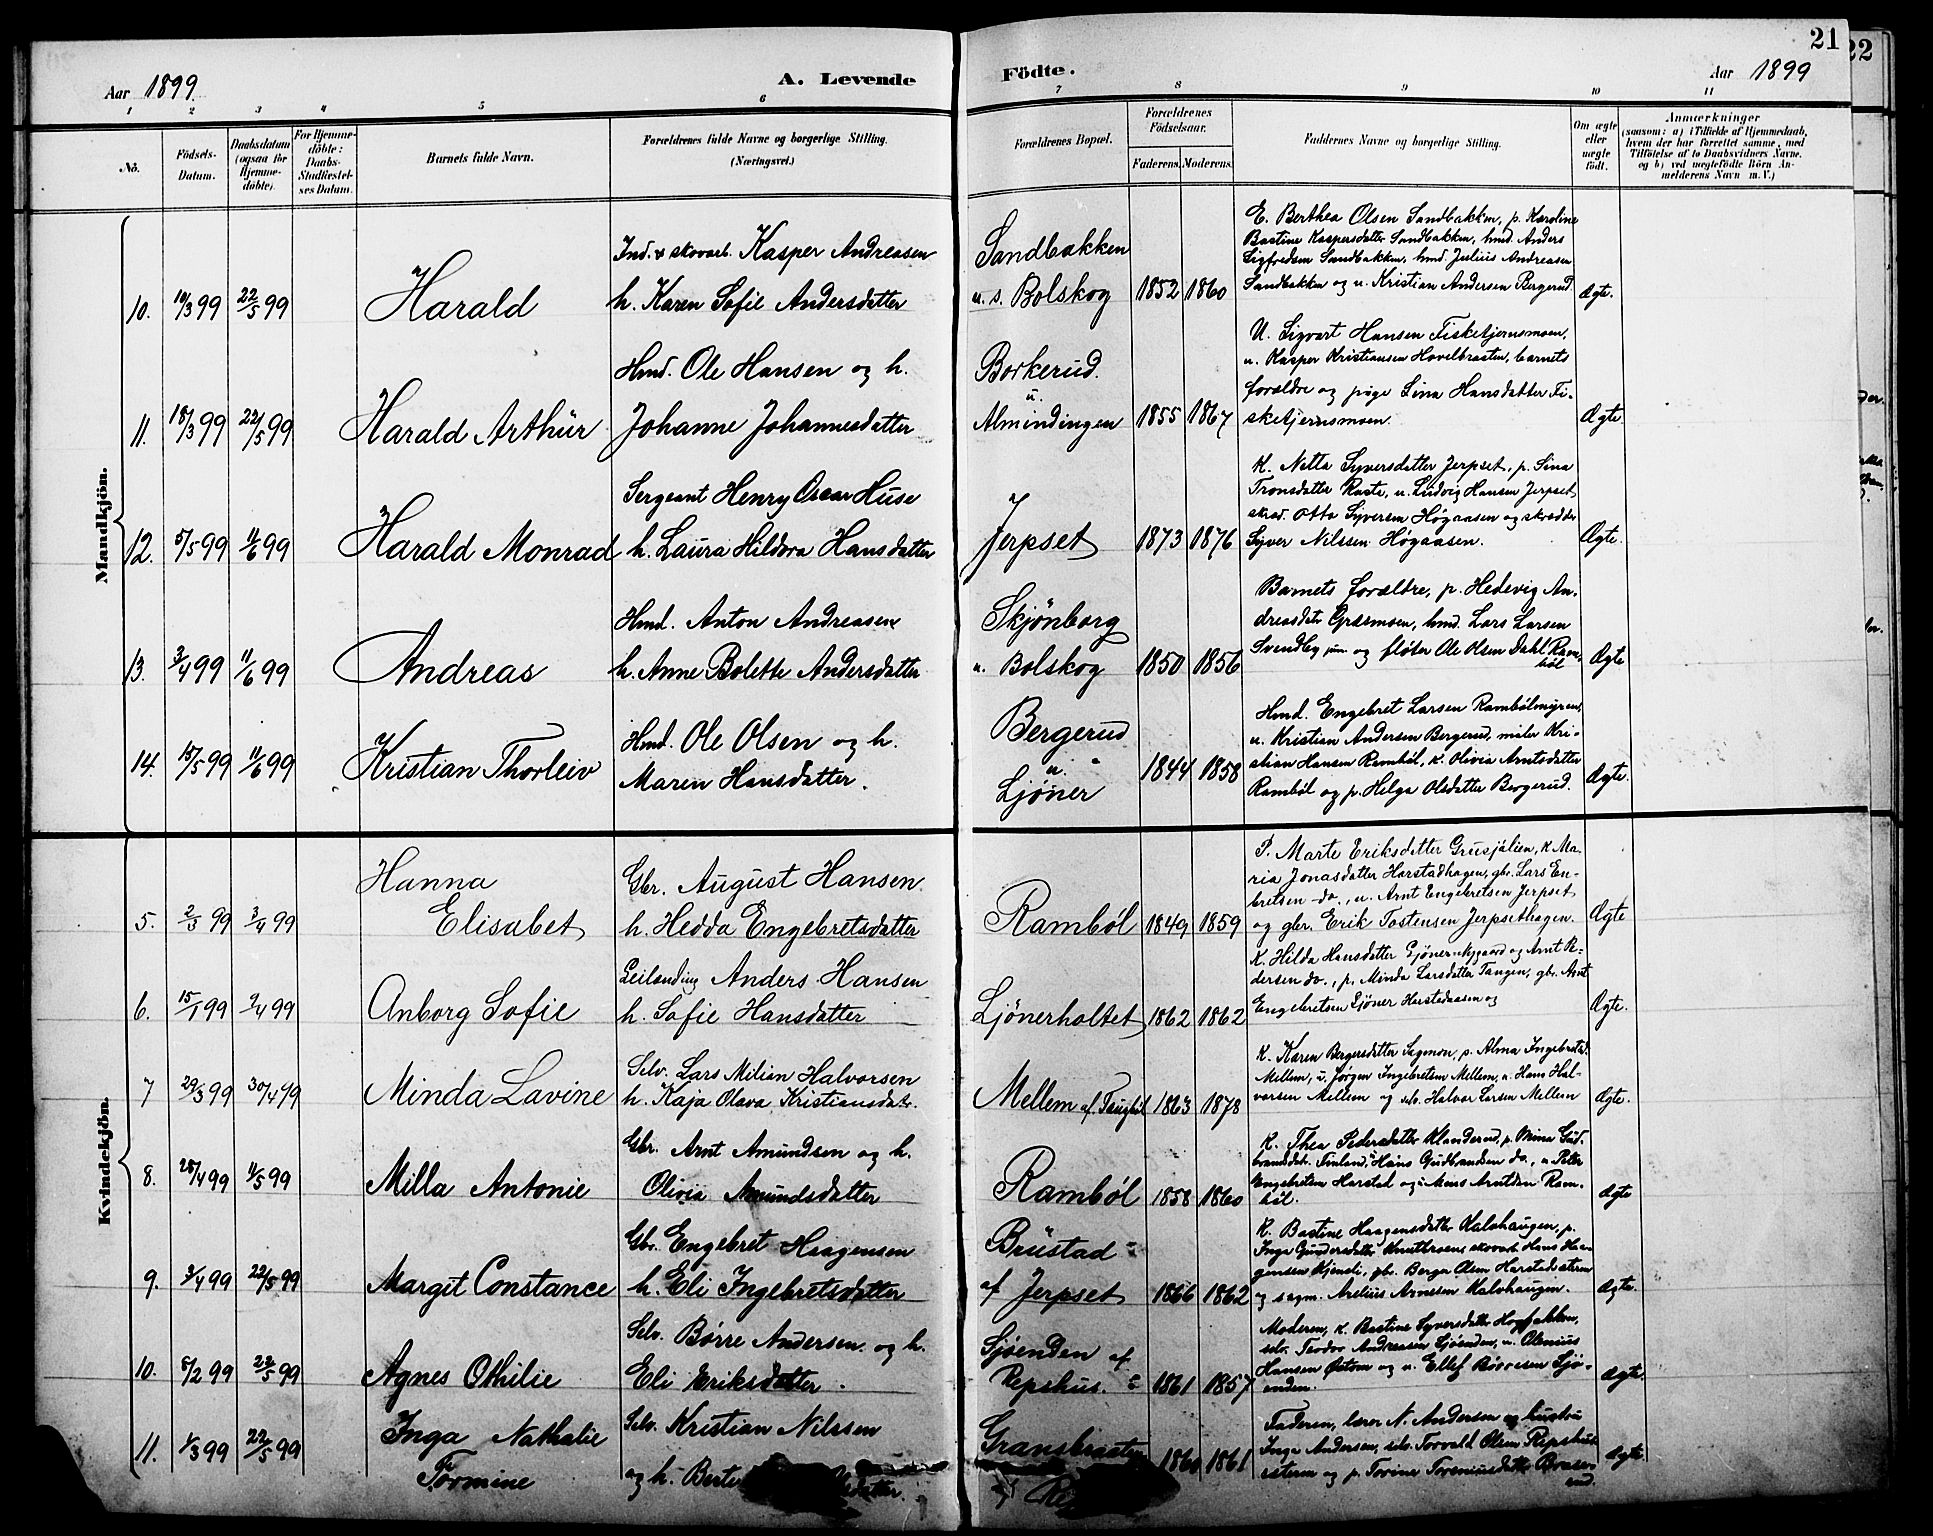 21
22
Aar 1899.
A. Levende
Födte.
Aar 1899
1 2 3 4 5 6 7 8 9 10 11
No.
Födsels-Datum.
Daabsdatum (ogsaa for Hjemme-döbte).
For Hjemme-döbte: Daabs-Stadfæstel-ses Datum.
Barnets fulde Navn.
Forældrenes fulde Navne og borgerlige Stilling.
(Næringsvei.)
Forældrenes Bopæl.
Forældrenes Födselsaar.
Faderens. Moderens.
Faddernes Navne og borgerlige Stilling.
Om ægte eller uægte födt.
Anmærkninger
(saasom: a) i Tilfælde af Hjemmedaab, hvem der har forrettet samme, med Tilföielse af to Daabsvidners Navne. og b) ved uægtefödte Börn An-melderens Navn m. V.)
Mandkjön.
10. 10/3 99 22/5 99 Harald
Ind. & skovarb. Kasper Andreasen
h. Karen Sofie Andersdatter
Sandbakken
u. s. Bolskog 1852 1860
E. Berthea Olsen Sandbakken, p. Karoline
Bastine Kaspersdatter Sandbakken, hmd. Anders
Sigfredsen Sandbakken, hmd. Julius Andreasen
Sandbakken og u. Kristian Andersen Bergerud.
Ægte.
11. 18/3 99 22/5 99 Harald Arthur
Hmd. Ole Hansen og h.
Johanne Johannesdatter
Borkerud.
u.
Almindingen 1855 1867
U. Sigvart Hansen Fisketjernsmoen,
u. Kasper Kristiansen Hovelbraaten, barnets
forældre og pige Lina Hansdatter Fi-
sketjernsmoen.
Ægte.
12. 5/5 99 11/6 99 Harald Monrad
Sergeant Henry Oscar Huse
h. Laura Hildora Hansdatter
Jerpset 1873 1876
K. Netta Syversdatter Jerpset, p. Sina
Tronsdatter Raste, u. Ludvig Hansen Jerpset
skræd. Otto Syversen Høgaasen og skrædder
Syver Nilssen Høgaasen.
Ægte.
13. 3/4 99 11/6 99 Andreas
Hmd. Anton Andreasen
h. Anne Bolette Andersdatter
Skjönborg
u. Bolskog 1850 1856
Barnets forældre, p. Hedevig An-
dreasdatr Græsmoen, hmd. Lars Larsen
Svendby jun og fløter Ole Olsen Dahl Ram-
böl
Ægte.
14. 15/5 99 11/6 99 Kristian Thorleiv
Hmd. Ole Olsen og h.
Maren Hansdatter.
Bergerud
u.
Ljöner 1844 1858
Hmd. Engebret Larsen Rambölmyren,
u. Kristian Andersen Bergerud, maler Kri-
stian Hansen Ramböl, k. Olivia Arntsdatter
Ramböl og p. Helga Olsdatter Bergerud.
Ægte.
Kvindekjön.
5. 2/3 99 3/4 99 Hanna
Elisabet
Gbr. August Hansen
h. Hedda Engebretsdatter
Ramböl 1849 1859
P. Marte Eriksdatter Grusjølien, k Ma
ria Jonasdatter Harstadhagen, gbr. Lars En-
bretsen do., u. Arnt Engebretsen Jerpset
og gbr. Erik Tostensen Jerpsethagen.
Ægte
6. 15/1 99 3/4 99 Anborg Sofie
Leilending Anders Hansen
h. Sofie Hansdatter
Ljönerholtet 1862 1862
K. Hilda Hansdatter Ljönernygaard og Arnt P-
dersen do., p. Minda Larsdatter Tangen, gbr. Arnt
Engebretsen Ljöner Harstadaasen og
Ægte.
7 29/3 99 30/4 99 Minda Lavine
Selv. Lars Milian Halvorsen
h. Kaja Olava Kristiansdatr.
Mellem af Taugböl 1863 1878
K. Karen Bergersdatter Sagmon, p. Alma Ingebretsd.
Mellem, u. Jørgen Ingebretsen Mellem, u. Hans Hal-
vorsen Mellem og selv. Halvor Larsen Mellem
Ægte.
8. 25/4 99 11/5 99 Milla Antonie
Gbr. Arnt Amundsen og h.
Olivia Amundsdatter
Ramböl 1858 1860
K. Thea Pedersdatter Klanderud, p. Mina Gud-
bransdat. Finland, Hans Gudbrandsen do., u Peter
Engebretsen Harstad og Mons Arntsen Ram-
böl.
Ægte
9. 3/4 99 22/5 99 Margit Constance
Gbr. Engebret Haagensen
h. Eli Ingebretsdatter
Brustad
af Jerpset 1866 1862
K. Bastine Haagensdatter Kalvhaugen, p.
Inga Gundersdatter skovarb Hans Haa
gensen gbr. Berga Olsen
og sagm. Arelius Arnesen Kalvhaugen.
Ægte.
10. 5/2 99 22/5 99 Agnes Othilie
Selv. Börre Andersen og h.
Eli Eriksdatter.
Sjöenden af
Repshus. 1861 1857
Moderen, k. Bastine Syversdatter
selv. Teodor Andreasen Sjöenden, u. Olenius
Hansen Østom og u. Ellef Börresen Sjö-
enden.
Ægte.
11. 1/3 99 22/5 99 Inga Nathalie
Formine
Selv. Kristian Nilssen
og h. Berte datter.
Gransbraaten
af Re 1860 1861
Faderen, lærer N. Andersen og hustru
Inga Andersen, selv. Torvald Olsen Repshus-
eteren og p. Torine Toreniusdatter Braser-
ud.
Ægte